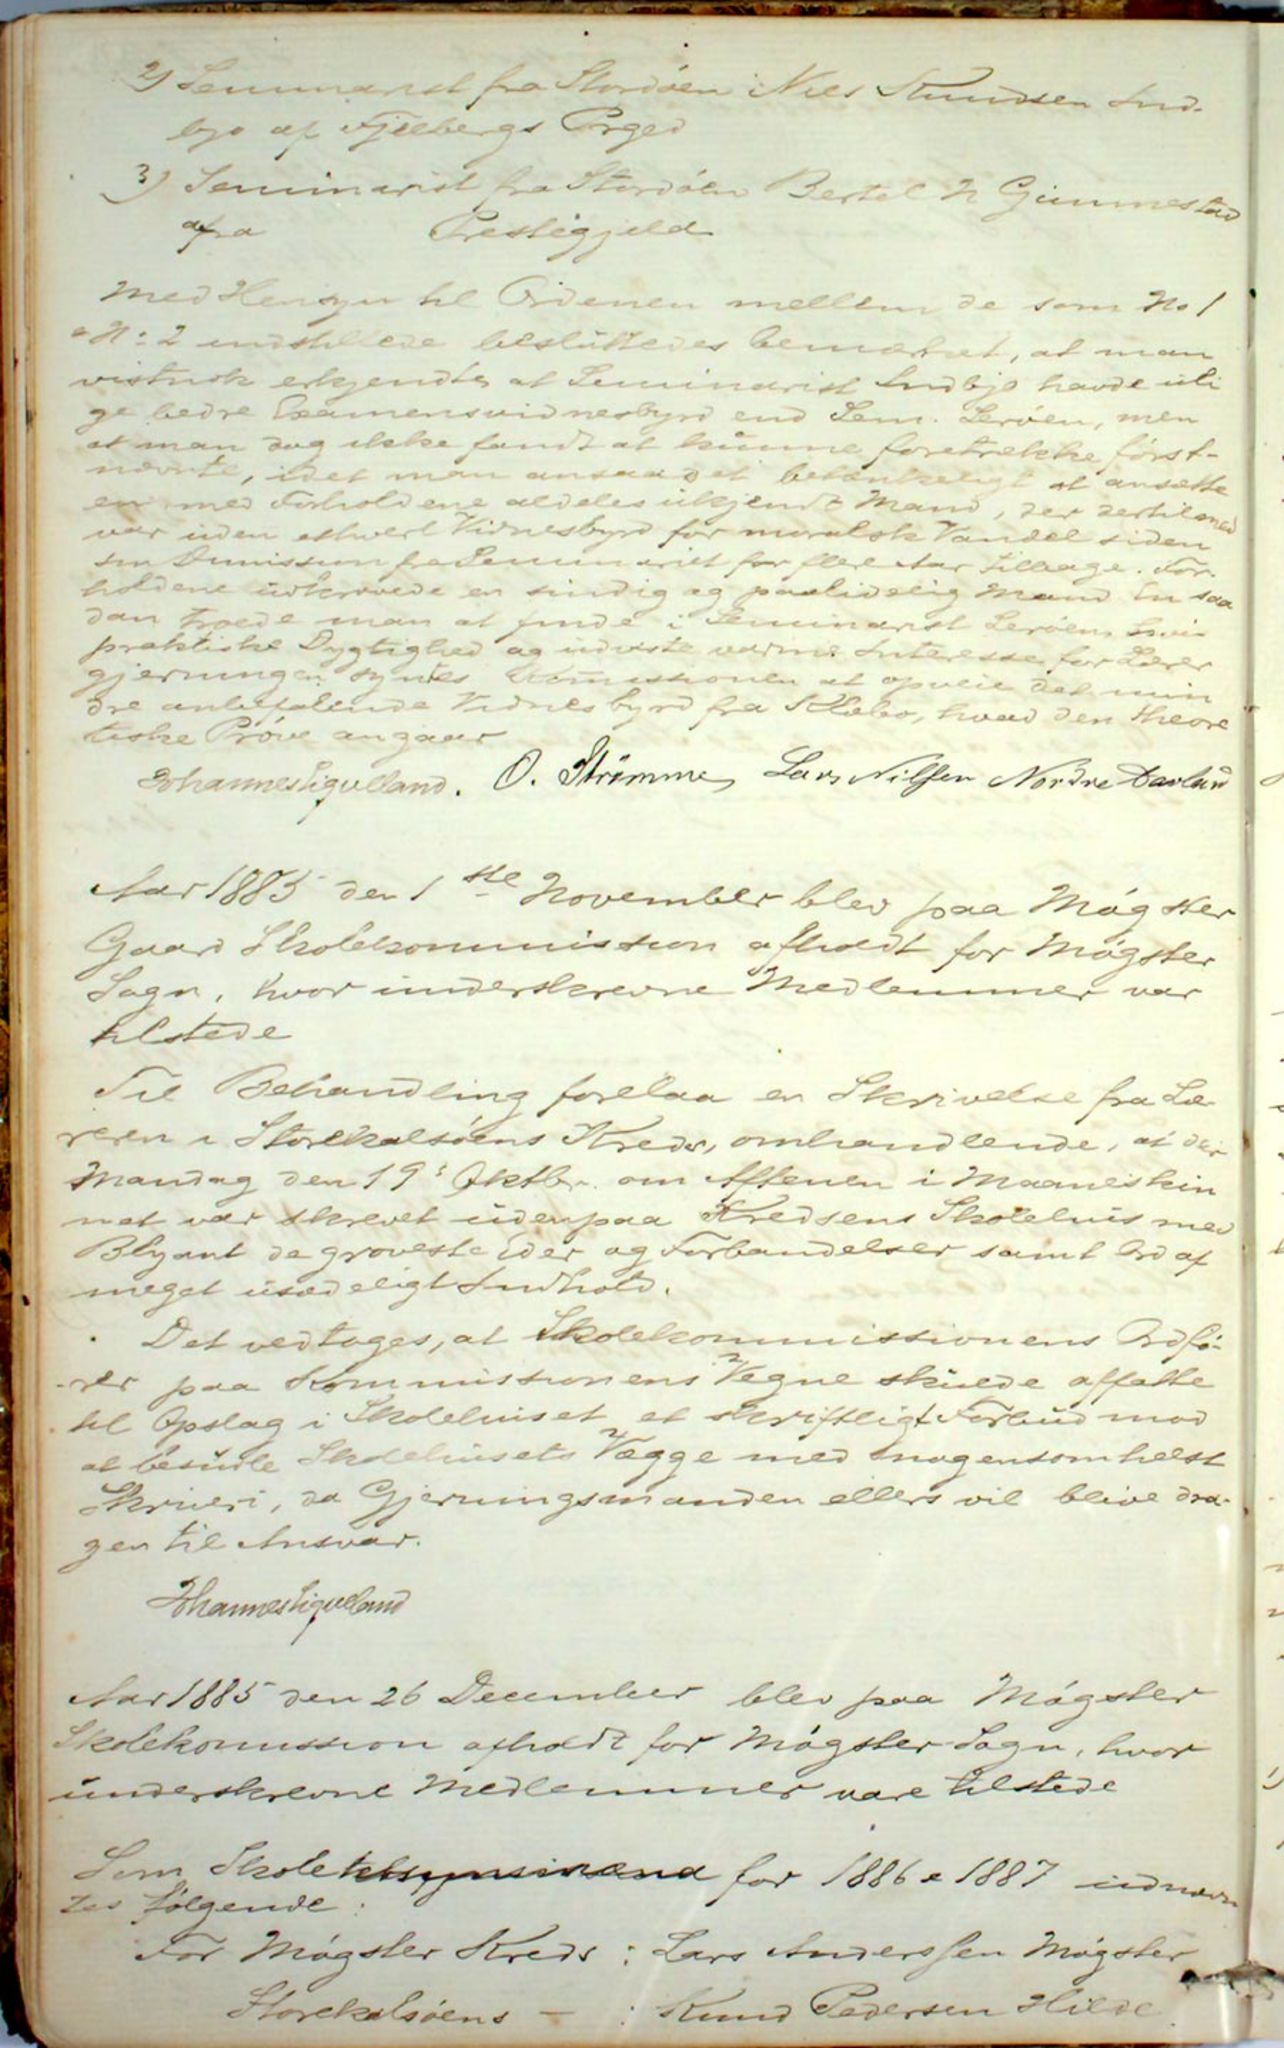 2) Seminarist fra Stordøen Niels Knudsen Ind-
bjo af Fjelbergs Prgjd
3) Seminarist fra Stordøen Bertel N Gimmestad
fra Prestegjeld
Med Hensyn til Ordenen mellem de som No 1
& N: 2 indstillede besluttedes bemærket, at man
vistnok erkjendte at Seminarist Indbjo havde uli
ge bedre Examensvidnesbyrd end Sem. Lerøen, men
at man dog ikke fandt at kunne foretrekke først-
nævnte, idet man ansaa det betænkeligt at ansætte
en med Forholdene aldeles ukjendt Mand, der dertilmed
var uden ethvert Vidnesbyrd for moralsk Vandel siden
sin Dimission fra Seminariet for flere Aar tilbage. For-
holdene udkrævede en sindig og paalidelig Mand. En saa
dan troede man at finde i Seminarist Lerøen, hvis
praktiske Dygtighed og udviste varme Interesse for Lærer
gjerningen syntes Komissionen at opveie det min
dre anbefalende Vidnesbyrd fra Klæbo, hvad den theore
tiske Prøve angaar
Johannes Sigvelland. O. Strømme, Lars Nilssen Nordre Davland
Aar 1885 den 1ste November blev paa Møgster
Gaard Skolekommission afholdt for Møgster
Sogn, hvor underskrevne Medlemmer var
tilstede
Til Behandling forelaa en Skrivelse fra Læ-
reren i Storekalsøens Kreds, omhandlende, at der
Mandag den 19: Oktbr. om Aftenen i Maaneskin
net var skrevet udenpaa Kredsens Skolehus med
Blyant de groveste Eder og Forbandelser samt Ord af
meget usædeligt Indhold.
Det vedtoges, at Skolekommissionens Ordfø-
rer paa Kommissionens Vegne skulde affatte
til Opslag i Skolehuset et skriftligt Forbud mod
at besudle Skolehusets Vægge med nogensomhelst
Skriveri, da Gjerningsmanden ellers vil blive dra-
gen til Ansvar.
Johannes Sigvelland
Aar 1885 den 26 December blev paa Møgster
Skolekomission afholdt for Møgster Sogn, hvor
underskrevne Medlemmer vare tilstede
Som Skoletilsynsmænd for 1886 & 1887 udnævn
tes følgende:
For Møgster Kreds: Lars Anderssen Møgster
Storekalsøens — : Knud Pedersen Hilde